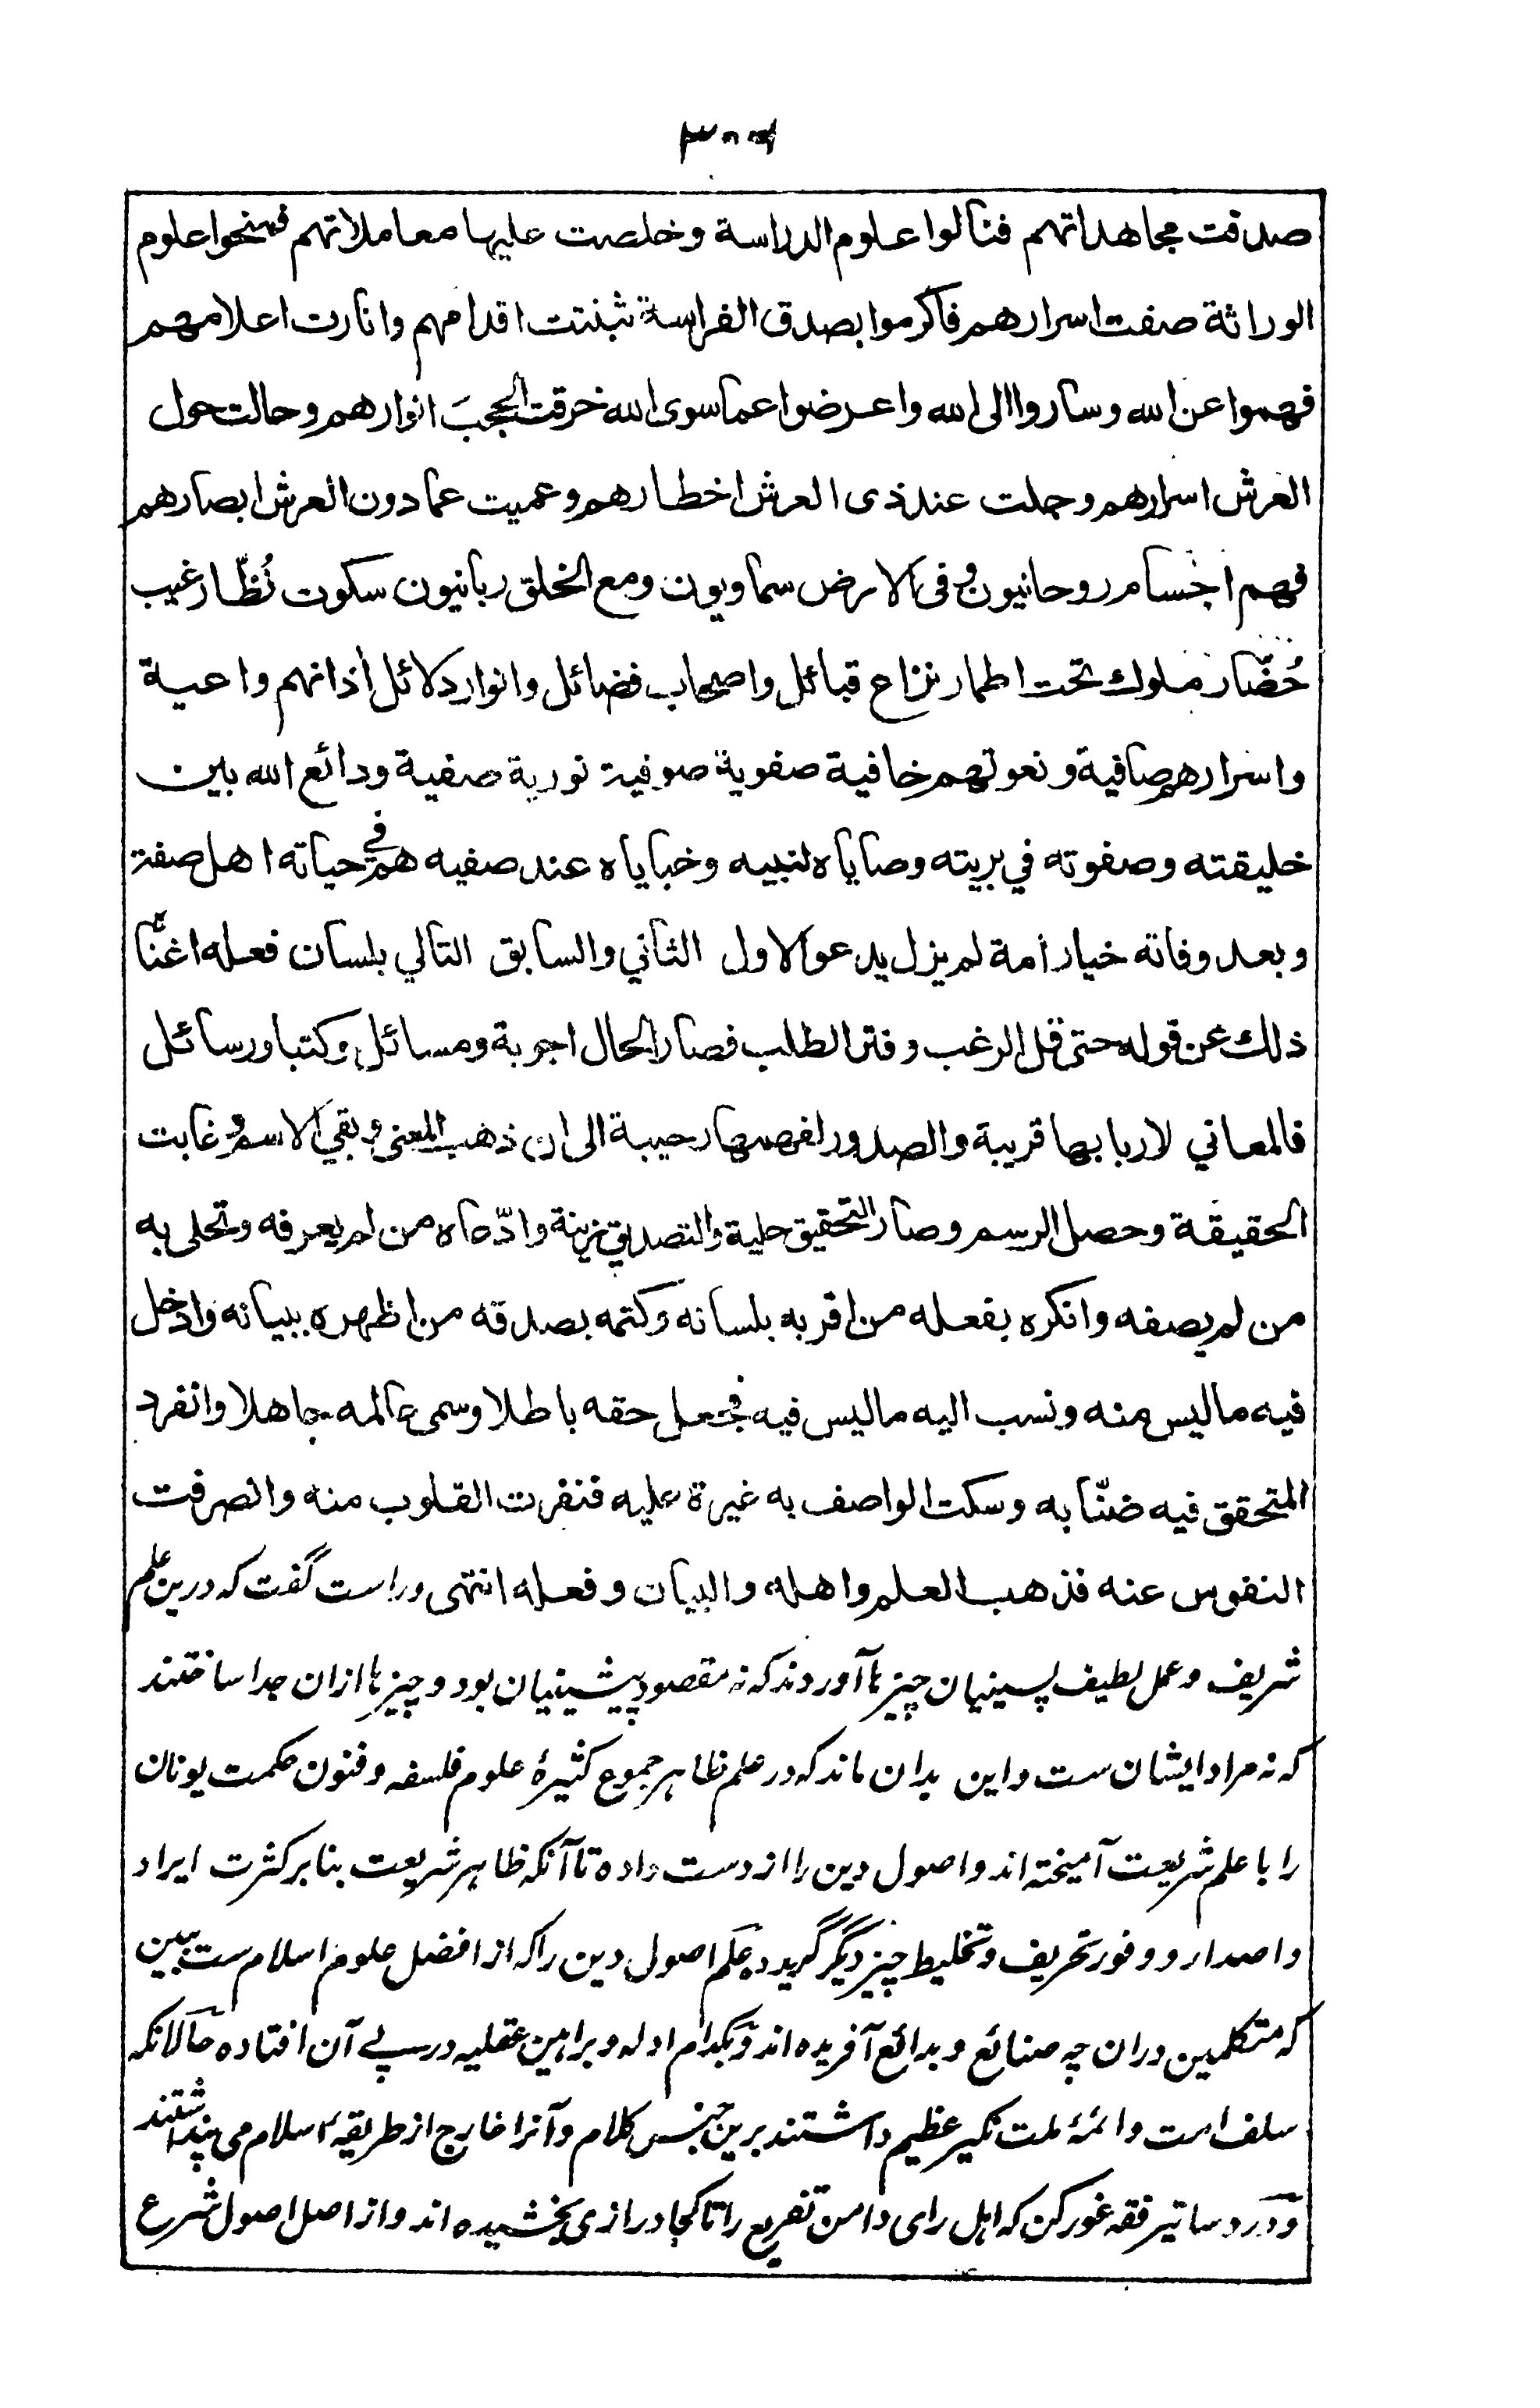 صدقت مجاهداتهم فنالوا علوم الدراسة وخلصت عليها معاملاتهم فمنحوا علوم
الوراثة صفت اسرارهم فاكرموا بصدق الفراسة ثبتت اقدامهم وانارت اعلامهم
فهموا عن الله وساروا الى الله واعرضوا عما سوى الله خرقت الحجبَ انوارهم وحالت حول
العرش اسرارهم وجلت عند ذى العرش اخطارهم وعميت عما دون العرش ابصارهم
فهم اجسام روحانيون وفى الارض سماويون ومع الخلق ربانيون سكوت نُظّار غيب
حُضّار ملوك تحت اطمار نزاع قبائل واصحاب فضائل وانوار دلائل أذانهم واعية
واسرارهم صافية ونعوتهم خافية صفوية صوفية نورية صفية ودائع الله بين
خليقته وصفوته في بريته وصاياه لنبيه وخباياه عند صفيه هم في حياته اهل صفته
وبعد وفاته خيار أمة لم يزل يدعو الاول الثاني والسابق التالي بلسان فعله اغنا
ذلك عن قوله حتى قل الرغب وفتر الطلب فصار الحال اجوبة ومسائل وكتبا ورسائل
فالمعاني لاربابها قريبة والصدور لفهمها رحيبة الى ان ذهب المعنى وبقي الاسم وغابت
الحقيقة وحصل الرسم وصار التحقيق حلية والتصديق زينة وادّعاه من لم يعرفه وتحلى به
من لم يصفه وانكره بفعله من اقر به بلسانه وكتمه بصدقه من اظهره ببيانه وادخل
فيه ما ليس منه ونسب اليه ما ليس فيه فجعل حقه باطلا وسمى عالمه جاهلا وانفرد
المتحقق فيه ضنّا به وسكت الواصف به غيرة عليه فنفرت القلوب منه وانصرفت
النفوس عنه فذهب العلم واهله والبيان وفعله انتهى وراست گفت که درین علم
شریف وعمل لطیف پسینیان چیزها آوردند که نه مقصود پیشینیان بود و چیزها ازان جدا ساختند
که نه مراد ایشان ست واین بدان ماند که در علم ظاهر جموع کثیرهٔ علوم فلسفه وفنون حکمت یونان
را با علم شریعت آمیخته اند واصول دین را از دست داده تا آنکه ظاهر شریعت بنا بر کثرت ایراد
واصدار و وفور تحریف وتخلیط چیز دیگر گردیده علم اصول دین را که از افضل علوم اسلام ست ببین
که متکلمین دران چه صنائع و بدائع آفریده اند وبکدام ادله وبراهین عقلیه در پے آن افتاده حالانکه
سلف امت وائمهٔ ملت نکیر عظیم داشتند برین جنس کلام وآنرا خارج از طریقهٔ اسلام می پنداشتند
ودر دساتیر فقه غور کن که اهل رای دامن تفریع را تا کجا درازی بخشیده اند واز اصل اصول شرع